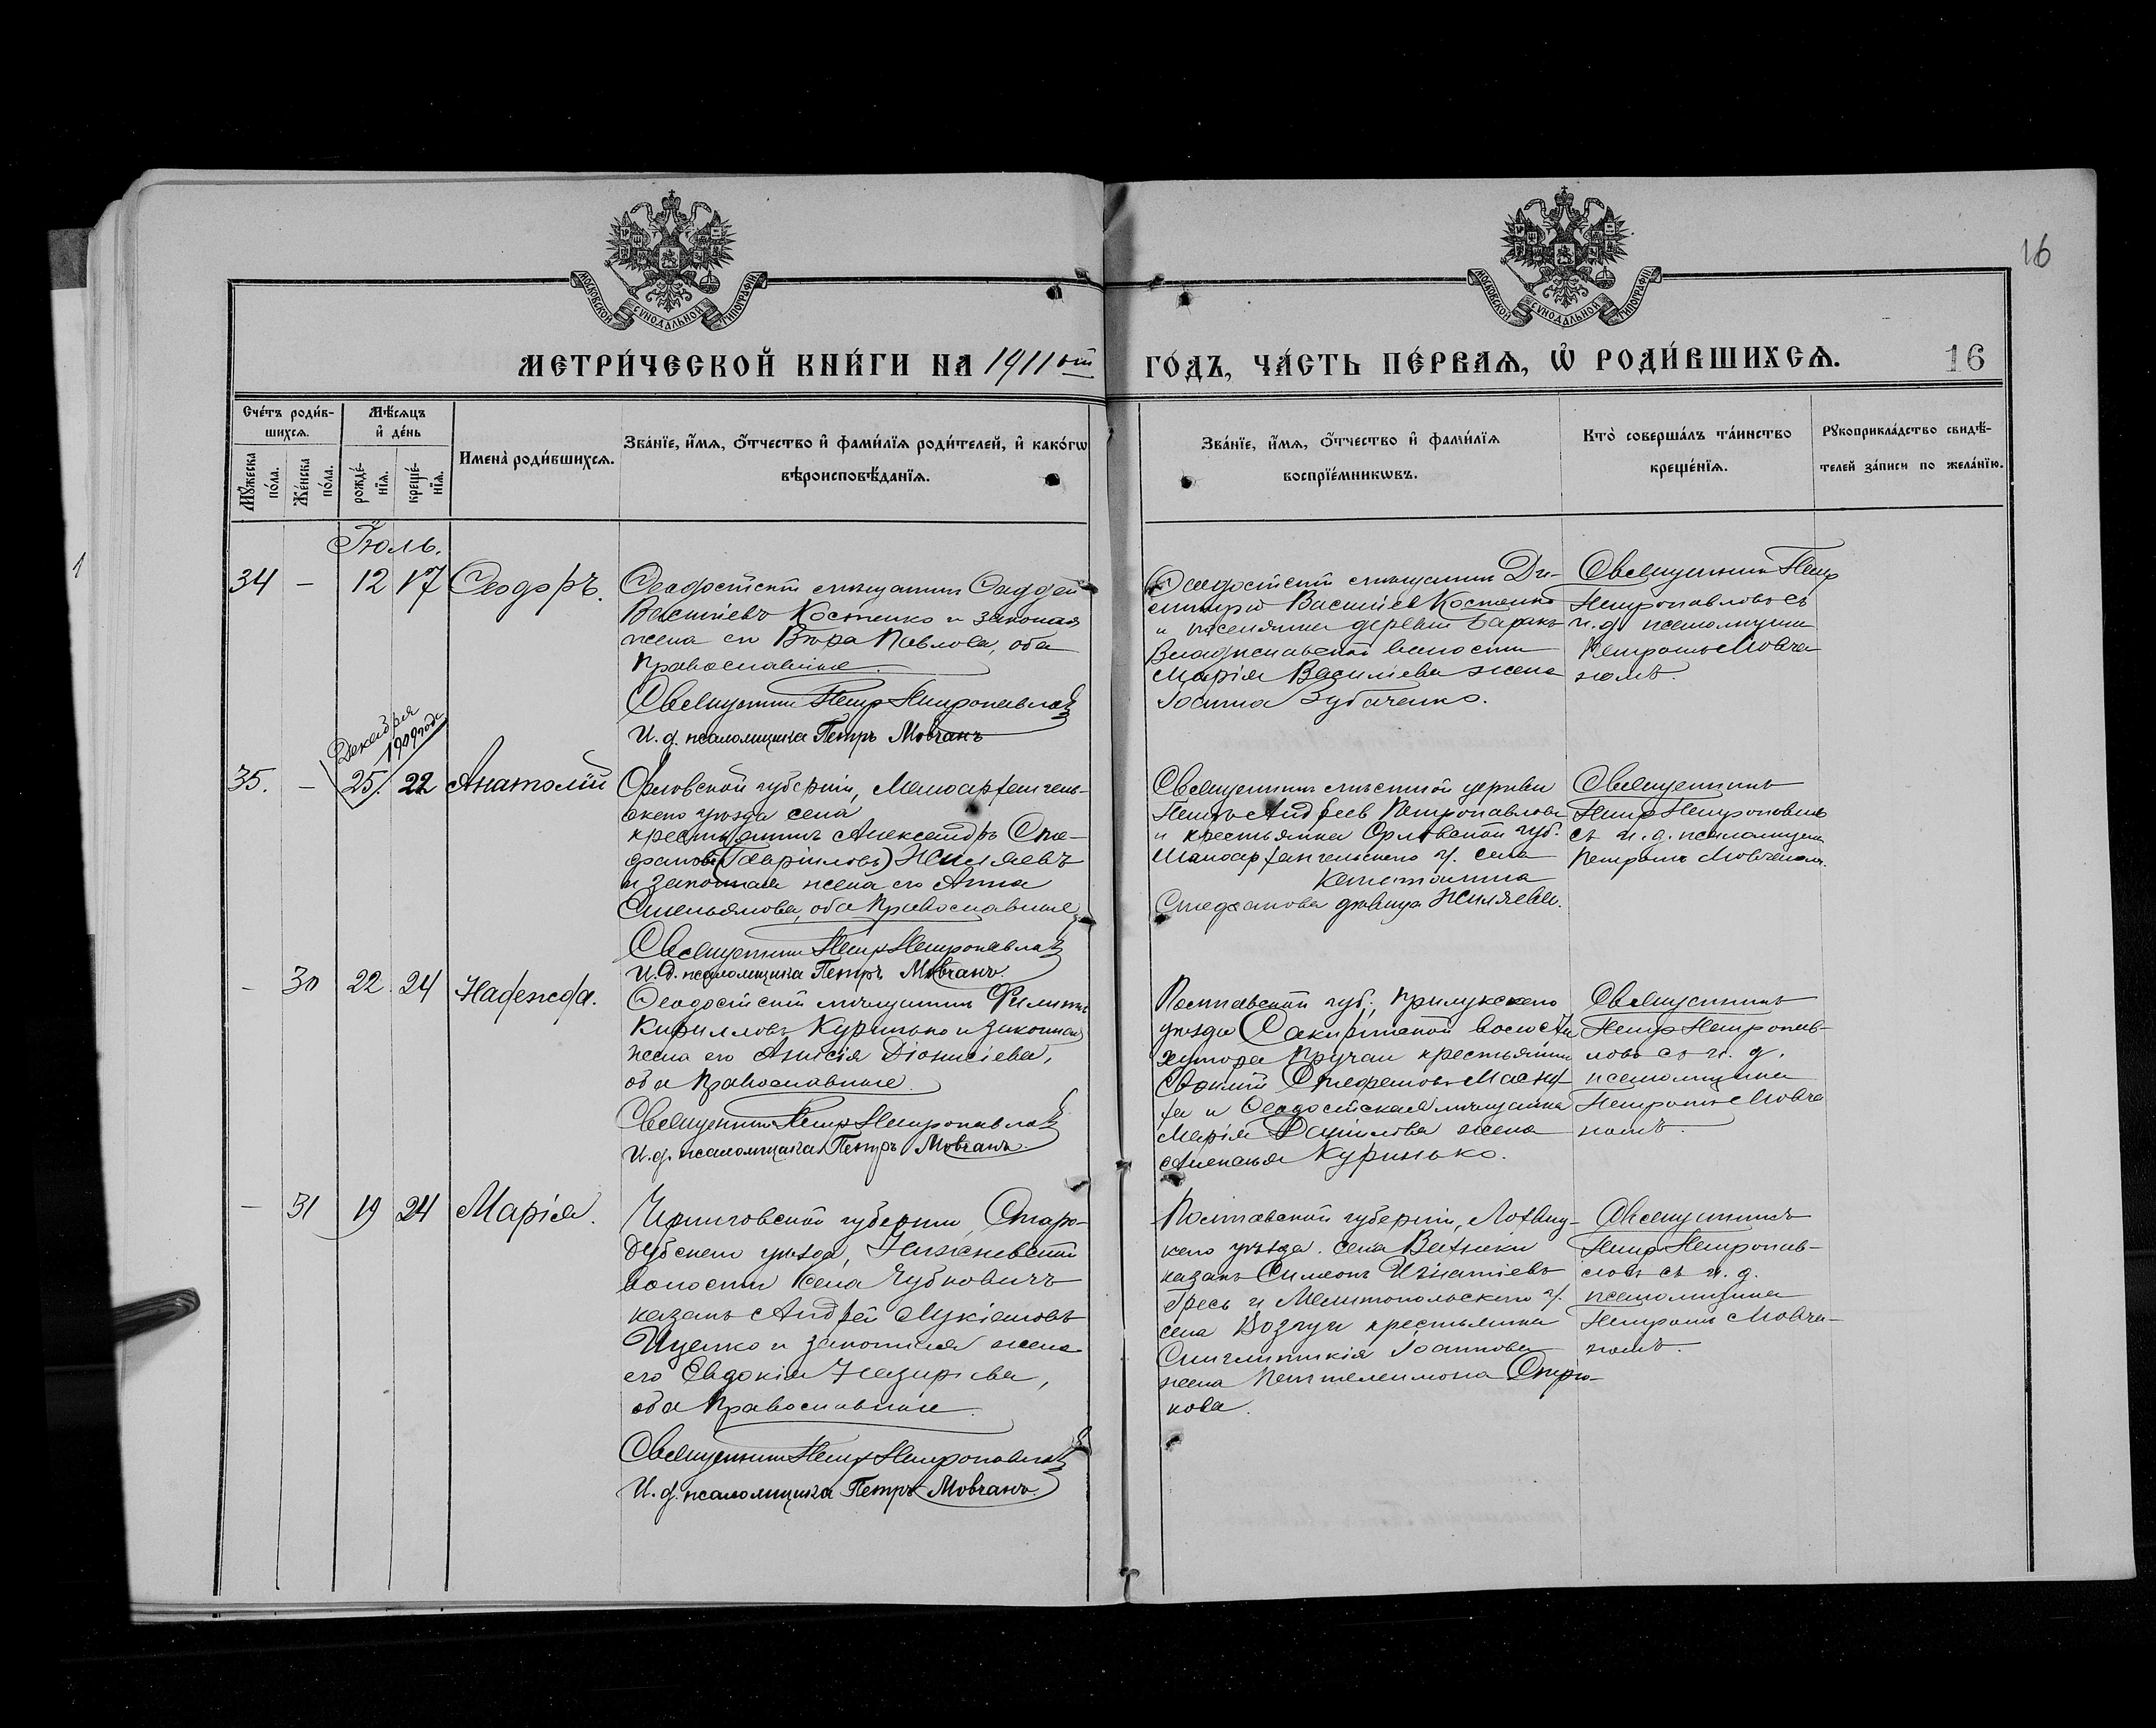 16
МОСКОВСКОЙ СУНОДАЛЬНОЙ ТИПОГРАФІИ
МОСКОВСКОЙ СУНОДАЛЬНОЙ ТИПОГРАФІИ
МЕТРИ́ЧЕСКОЙ КНИ́ГИ НА 1911 ый ГО́ДЪ, ЧА́СТЬ ПЕ́РВАѦ, Ѡ҆ РОДИ́ВШИХСѦ. 16
Сче́тъ роди́в-
шихсѧ.
Мꙋ́жеска по́ла.
Же́нска по́ла.
Мѣ́сѧцъ
и҆ де́нь
рожде́-
нїѧ.
креще́-
нїѧ.
Имена̀ роди́вшихсѧ.
Зва́нїе, и҆́мѧ, ѻ҆́тчество и҆ фами́лїѧ роди́телей, и҆ како́гѡ
вѣроисповѣ́данїѧ.
Зва́нїе, и҆́мѧ, ѻ҆́тчество и҆ фами́лїѧ
воспрїе́мникѡвъ.
Кто̀ соверша́лъ та́инство
креще́нїѧ.
Рꙋкоприкла́дство свидѣ́-
телей за́писи по жела́нїю.
Іюль.
34 — 12 17 Ѳеодоръ.
Ѳеодосійскій мѣщанинъ Ѳаддей
Василіевъ Костенко и законая
жена его Вѣра Павлова, оба
православные.
Священникъ Петръ Петропавловъ
И. д. псаломщика Петръ Мовчанъ
Ѳеодосійскій мѣщанинъ Ди-
митрій Василіев Костенко
и поселянка деревни Баракъ
Владиславской волости
Марія Василіева жена
Іоанна Зубаченко.
Священникъ Петр
Петропавловъ съ
и. д. псаломщика
Петромъ Мовча
номъ.
Декабря
1909 года
35. — 25. 22 Анатолій
Орловской губерніи, Малоархангель-
скаго уѣзда села
крестьянинъ Александръ Сте-
фановъ (Гавріиловъ) Жиляевъ
и законная жена его Анна
Емельянова, оба православные
Священникъ Петръ Петропавловъ
И. д. псаломщика Петръ Мовчанъ.
Священникъ мѣстной церкви
Петръ Андреев Петропавловъ
и крестьянка Орловской губ.
Малоархангельского у. села
Капитолина
Стефанова дѣвица Жиляева.
Священникъ
Петръ Петропавловъ
съ и. д. псаломщика
Петромъ Мовчаномъ.
— 30 22 24 Надежда.
Ѳеодосійскій мѣщанинъ Филиппъ
Кирилловъ Куринько и законная
жена его Анисія Діонисіева,
оба православные.
Священникъ Петръ Петропавловъ
И. д. псаломщика Петръ Мовчанъ.
Полтавской губ., Прилукскаго
уѣзда волости
хутора крестьянинъ
Стефановъ
и Ѳеодосійская мѣщанка
Марія Даніилова жена
Куринько.
Священникъ
Петръ Петропав-
ловъ съ и. д.
псаломщика
Петромъ Мовча
номъ.
— 31 19 24 Марія.
Черниговской губерніи, Старо-
дубскаго уѣзда,
волости села Чубковичъ
казакъ Андрей Лукіановъ
Иценко и законная жена
его Евдокія Назарьева,
оба православные.
Священникъ Петръ Петропавловъ
И. д. псаломщика Петръ Мовчанъ.
Полтавской губерніи, Лохвиц-
каго уѣзда. села
казакъ Симеонъ Игнатіевъ
Гресь и Мелитопольскаго у.
села крестьянка
Синклитикія Іоаннова
жена Пантелеимона
кова.
Священникъ
Петръ Петропав-
ловъ съ и. д.
псаломщика
Петромъ Мовча-
номъ.